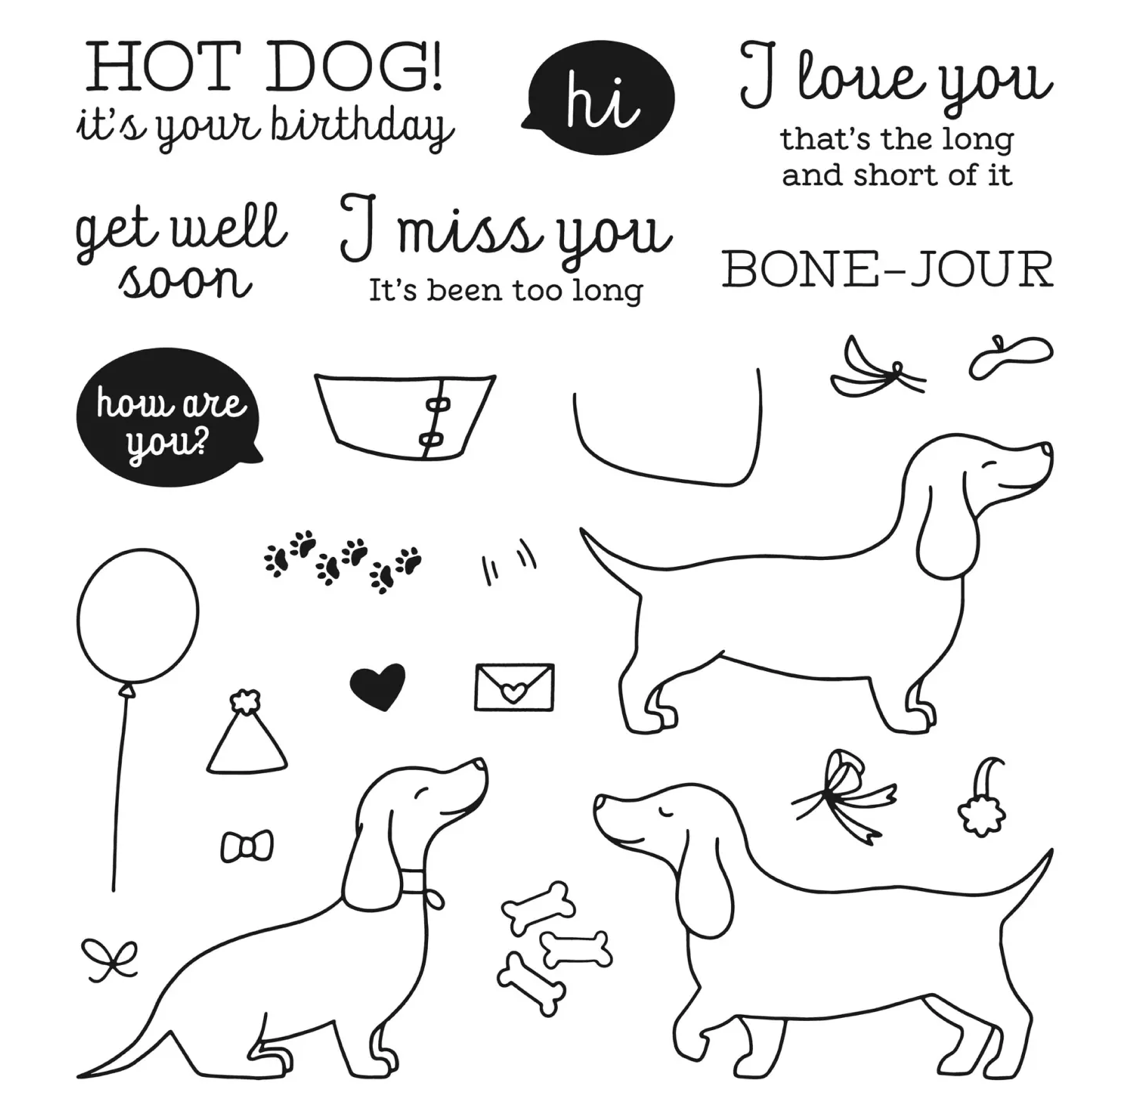 HOT DOG!
it's your birthday
hi
I love you
that's the long
and short of it
get well
soon
I miss you
It's been too long
BONE-JOUR
how are
you?